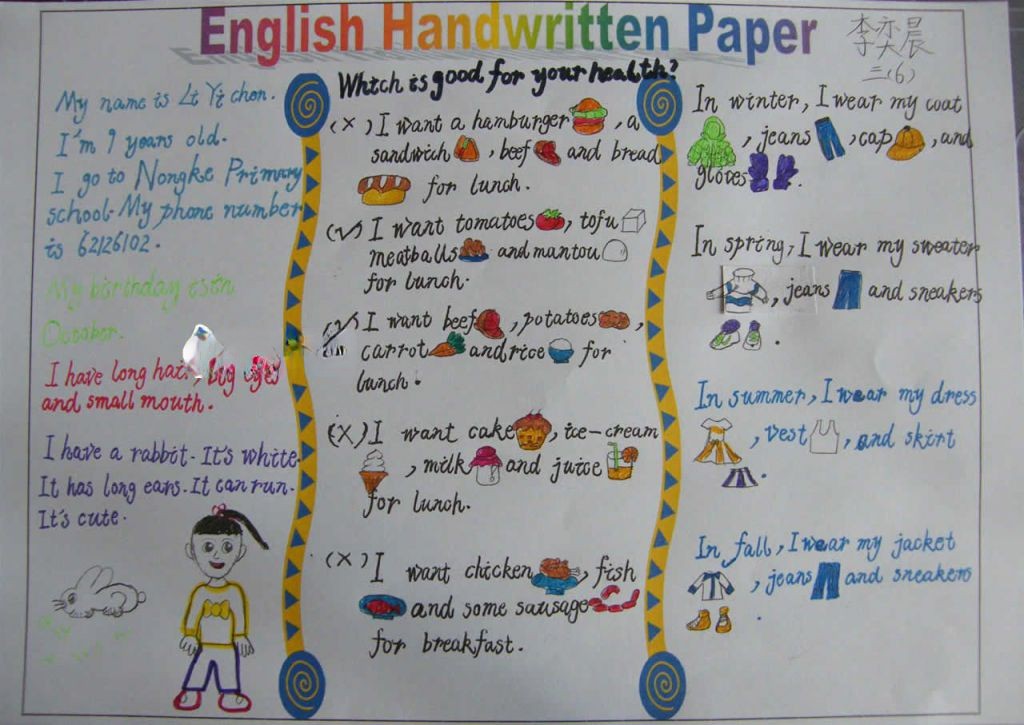 English Handwritten Paper
李亦晨
三(6)
My name is Li Yi chen.
I'm 9 years old.
I go to Nongke Primary
school. My phone number
is 62126102.
My birthday is in
October.
I have long hair, big eyes
and small mouth.
I have a rabbit. It's white.
It has long ears. It can run.
It's cute.
Which is good for your health?
(×) I want a hamburger, a
sandwich, beef and bread
for lunch.
(✓) I want tomatoes, tofu
meatballs and mantou
for lunch.
(✓) I want beef, potatoes,
carrot and rice for
lunch.
(×) I want cake, ice-cream
, milk and juice
for lunch.
(×) I want chicken, fish
and some sausage
for breakfast.
In winter, I wear my coat
, jeans, cap, and
gloves.
In spring, I wear my sweater
, jeans and sneakers
.
In summer, I wear my dress
, vest, and skirt
.
In fall, I wear my jacket
, jeans and sneakers
.